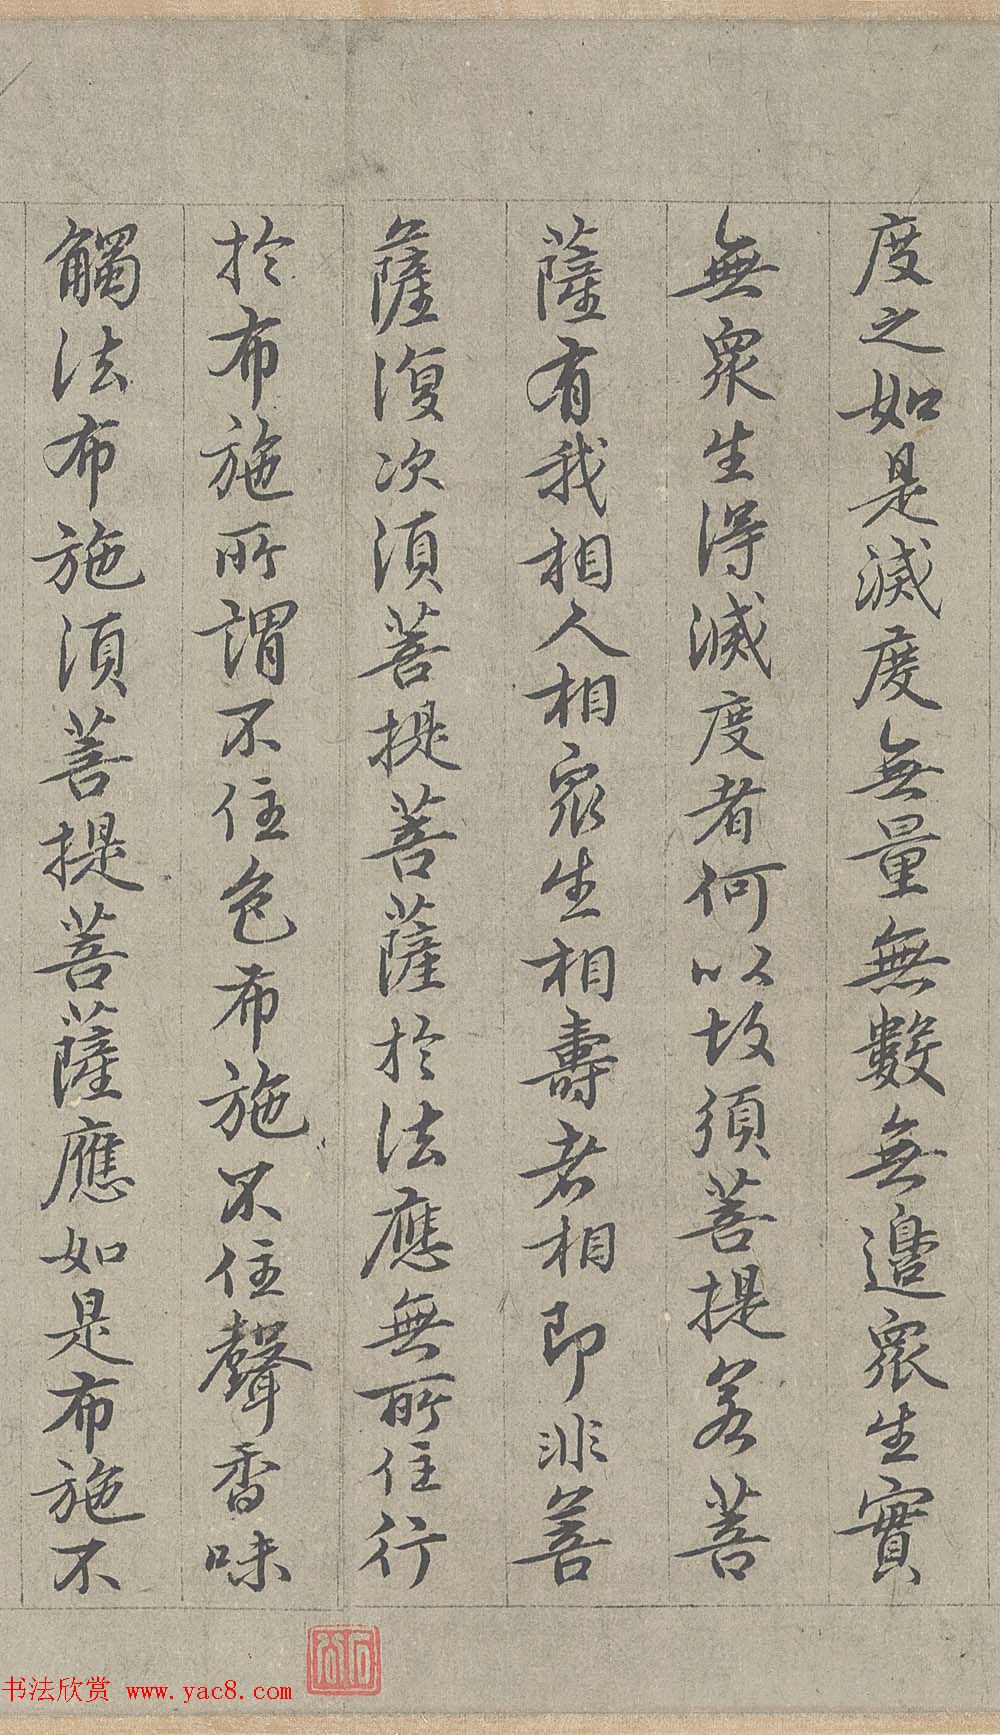 度之如是滅度無量無數無邊眾生實
無眾生得滅度者何以故須菩提若菩
薩有我相人相眾生相壽者相即非菩
薩復次須菩提菩薩於法應無所住行
於布施所謂不住色布施不住聲香味
觸法布施須菩提菩薩應如是布施不
书法欣赏 www.yac8.com